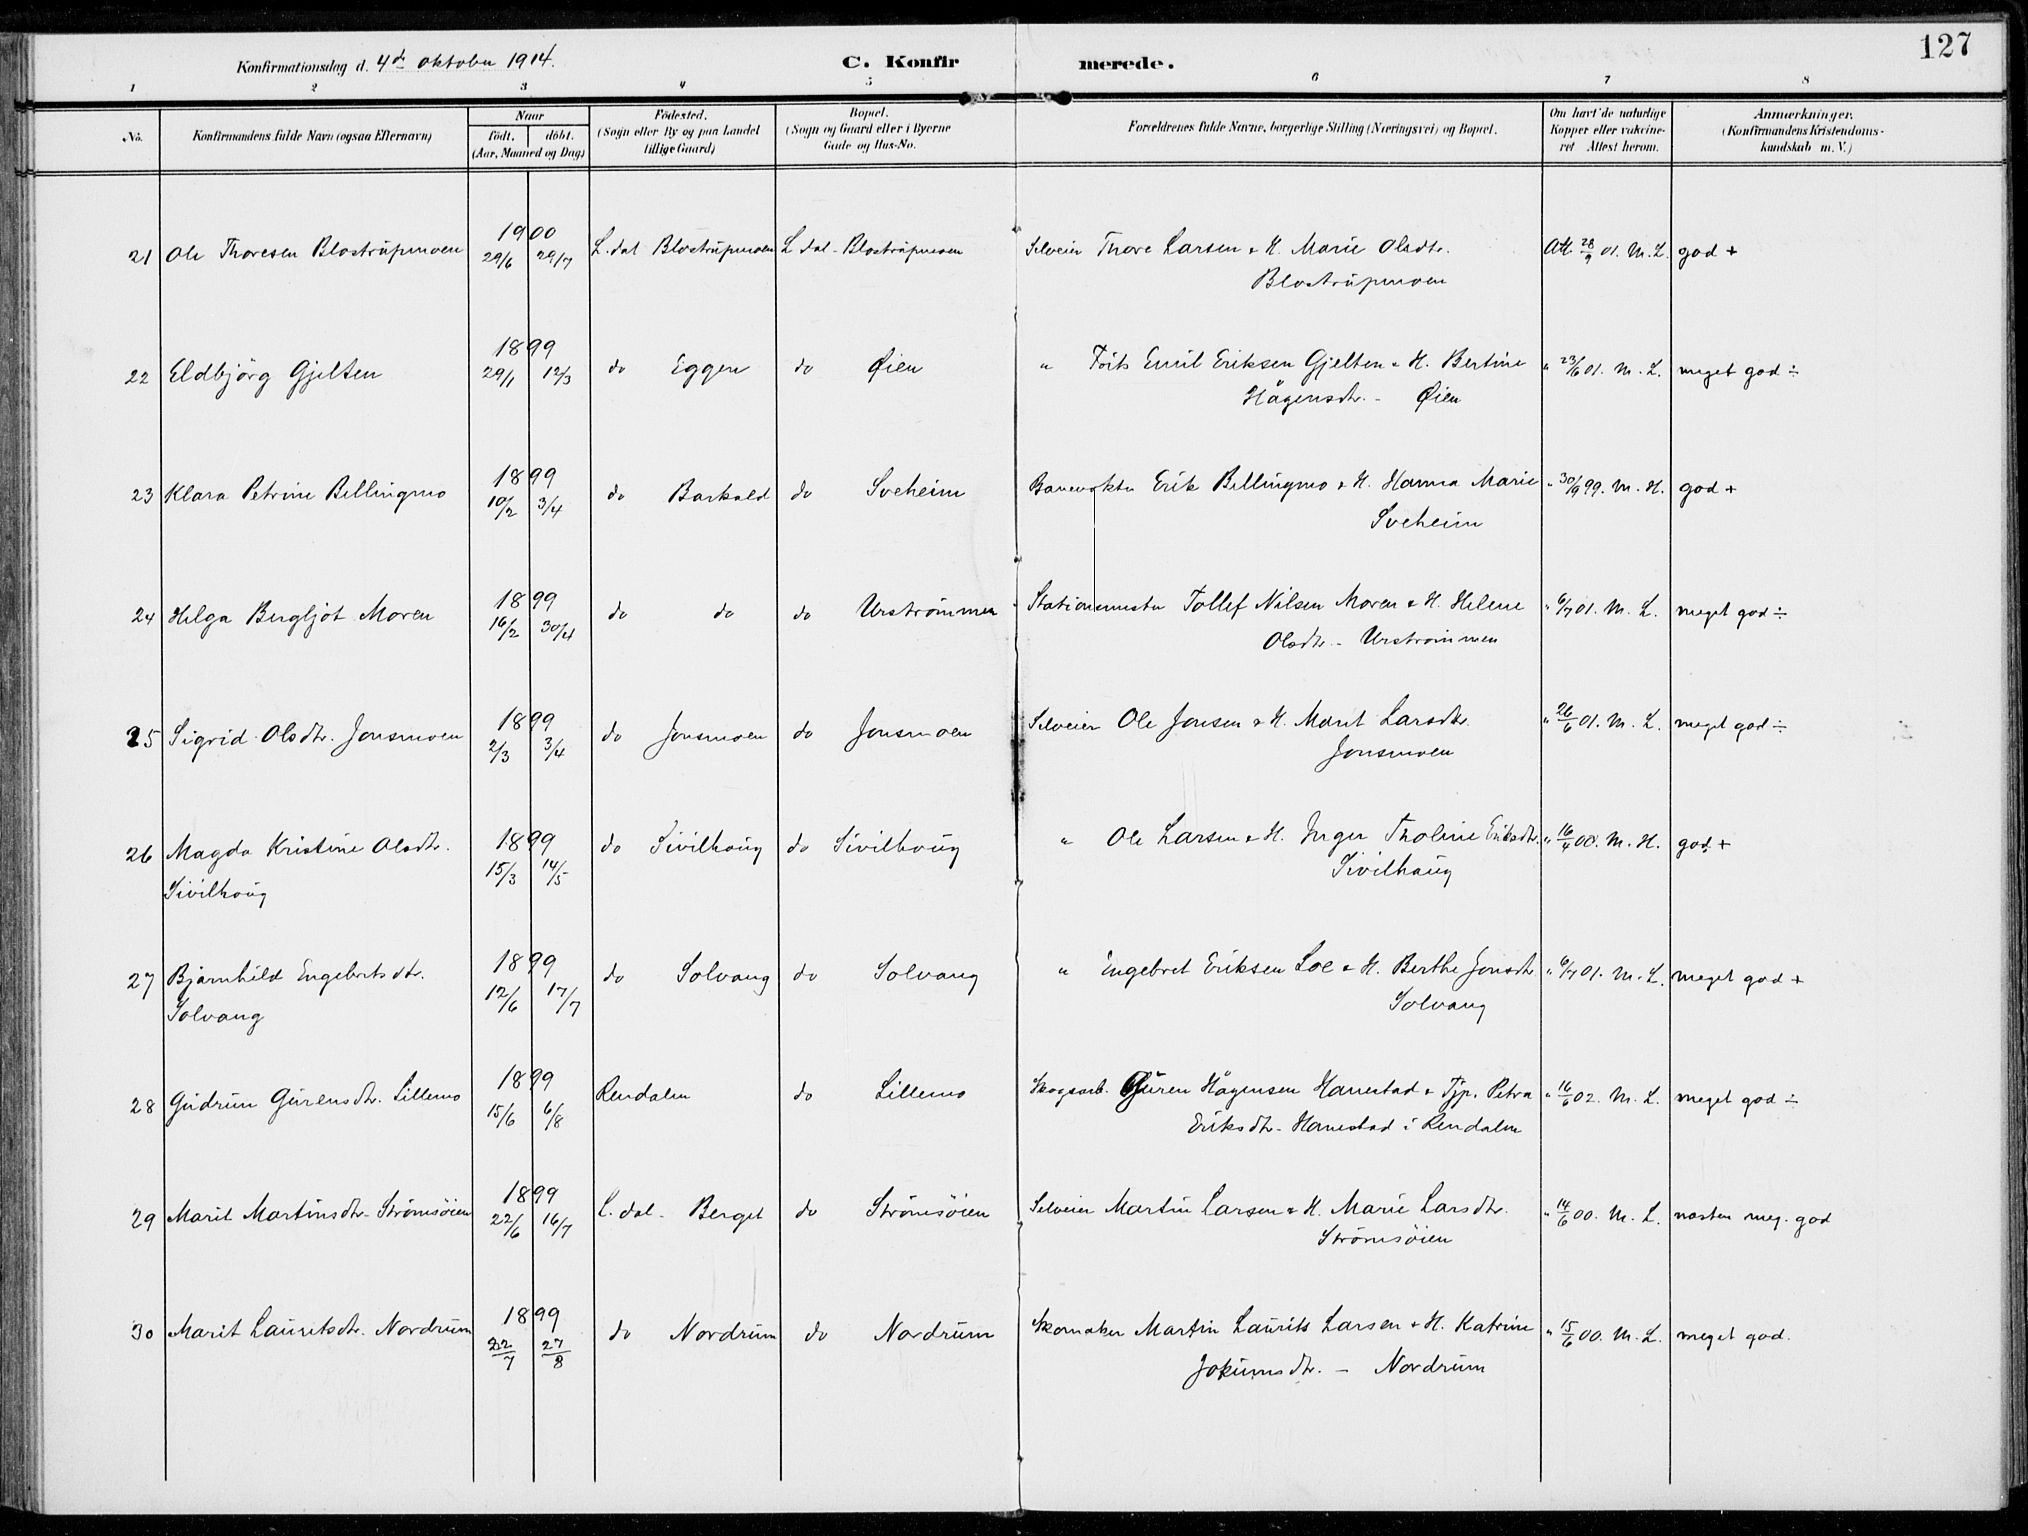 127
Konfirmationsdag d. 4de oktober 1914.
C. Konfirmerede.
1 2 3 4 5 6 7 8
No. Konfirmandens fulde Navn (ogsaa Efternavn) Naar født. døbt. (Aar, Maaned og Dag) Fødested. (Sogn eller By og paa Landet tillige Gaard) Bopæl. (Sogn og Gaard eller i Byerne Gade og Hus-No. Forældrenes fulde Navne, borgerlige Stilling (Næringsvei) og Bopæl. Om havt de naturlige Kopper eller vakcineret Attest herom. Anmærkninger. (Konfirmandens Kristendomskundskab m. V.)
1900
21 Ole Thoresen Blostrupmoen 29/6 29/7 L.dal Blostrupmoen L.dal - Blostrupmoen Selveier Thore Larsen & H. Marie Olsdtr. Att. 28/9 01. M. L. god +
Blostrupmoen
1899
22 Eldbjörg Gjelten 29/1 12/3 do Eggen do Øien " Emil Eriksen Gjelten & H. Bertine " 23/6 01. M. L. meget god ÷
Hågensdtr. - Øien
1899
23 Klara Petrine Bellingmo 10/2 3/4 do Barkald do Sveheim Banevokter Erik Bellingmo & H. Hanna Marie " 30/9 99. M. H. god +
Sveheim
1899
24 Helga Bergljot Moren 16/2 30/4 do do do Urstrømmen Stationsmester Tollef Nilsen Moren & H. Helene " 6/7 01. M. L. meget god ÷
Olsdtr. - Urstrømmen
1899
25 Sigrid Olsdtr. Jonsmoen 2/3 3/4 do Jonsmoen do Jonsmoen Selveier Ole Jonsen & H. Marit Larsdtr. " 26/6 01. M. L. meget god ÷
Jonsmoen
1899
26 Magda Kristine Olsdtr. 15/3 14/5 do Sivilhaug do Sivilhaug " Ole Larsen & H. Inger Tholine Eriksdtr. " 16/4 00. M. H. god +
Sivilhaug Sivilhaug
1899
27 Bjarnhild Engebretsdtr. 12/6 17/7 do Solvang do Solvang " Engebret Eriksen Loe & H. Berthe Jonsdtr. " 6/7 01. M. L. meget god +
Solvang Solvang
1899
28 Gudrun Gurensdtr. Lillemo 15/6 6/8 Rendalen do Lillemo Skogsarb. Guren Hågensen Hanestad & Tjp. Petra " 16/6 02. M. L. meget god ÷
Eriksdtr. - Hanestad i Rendalen
1899
29 Marit Martinsdtr. Strømsøien 22/6 16/7 L.dal - Berget do Strømsøien Selveier Martin Larsen & H. Marie Larsdtr. " 14/6 00. M. L. næsten meg. god
Strømsøien
1899
30 Marit Lauritsdtr. Nordrum 22/7 27/8 do Nordrum do Nordrum Skomaker Martin Laurits Larsen & H. Katrine " 15/6 00. M. L. meget god.
Jokumsdtr. - Nordrum